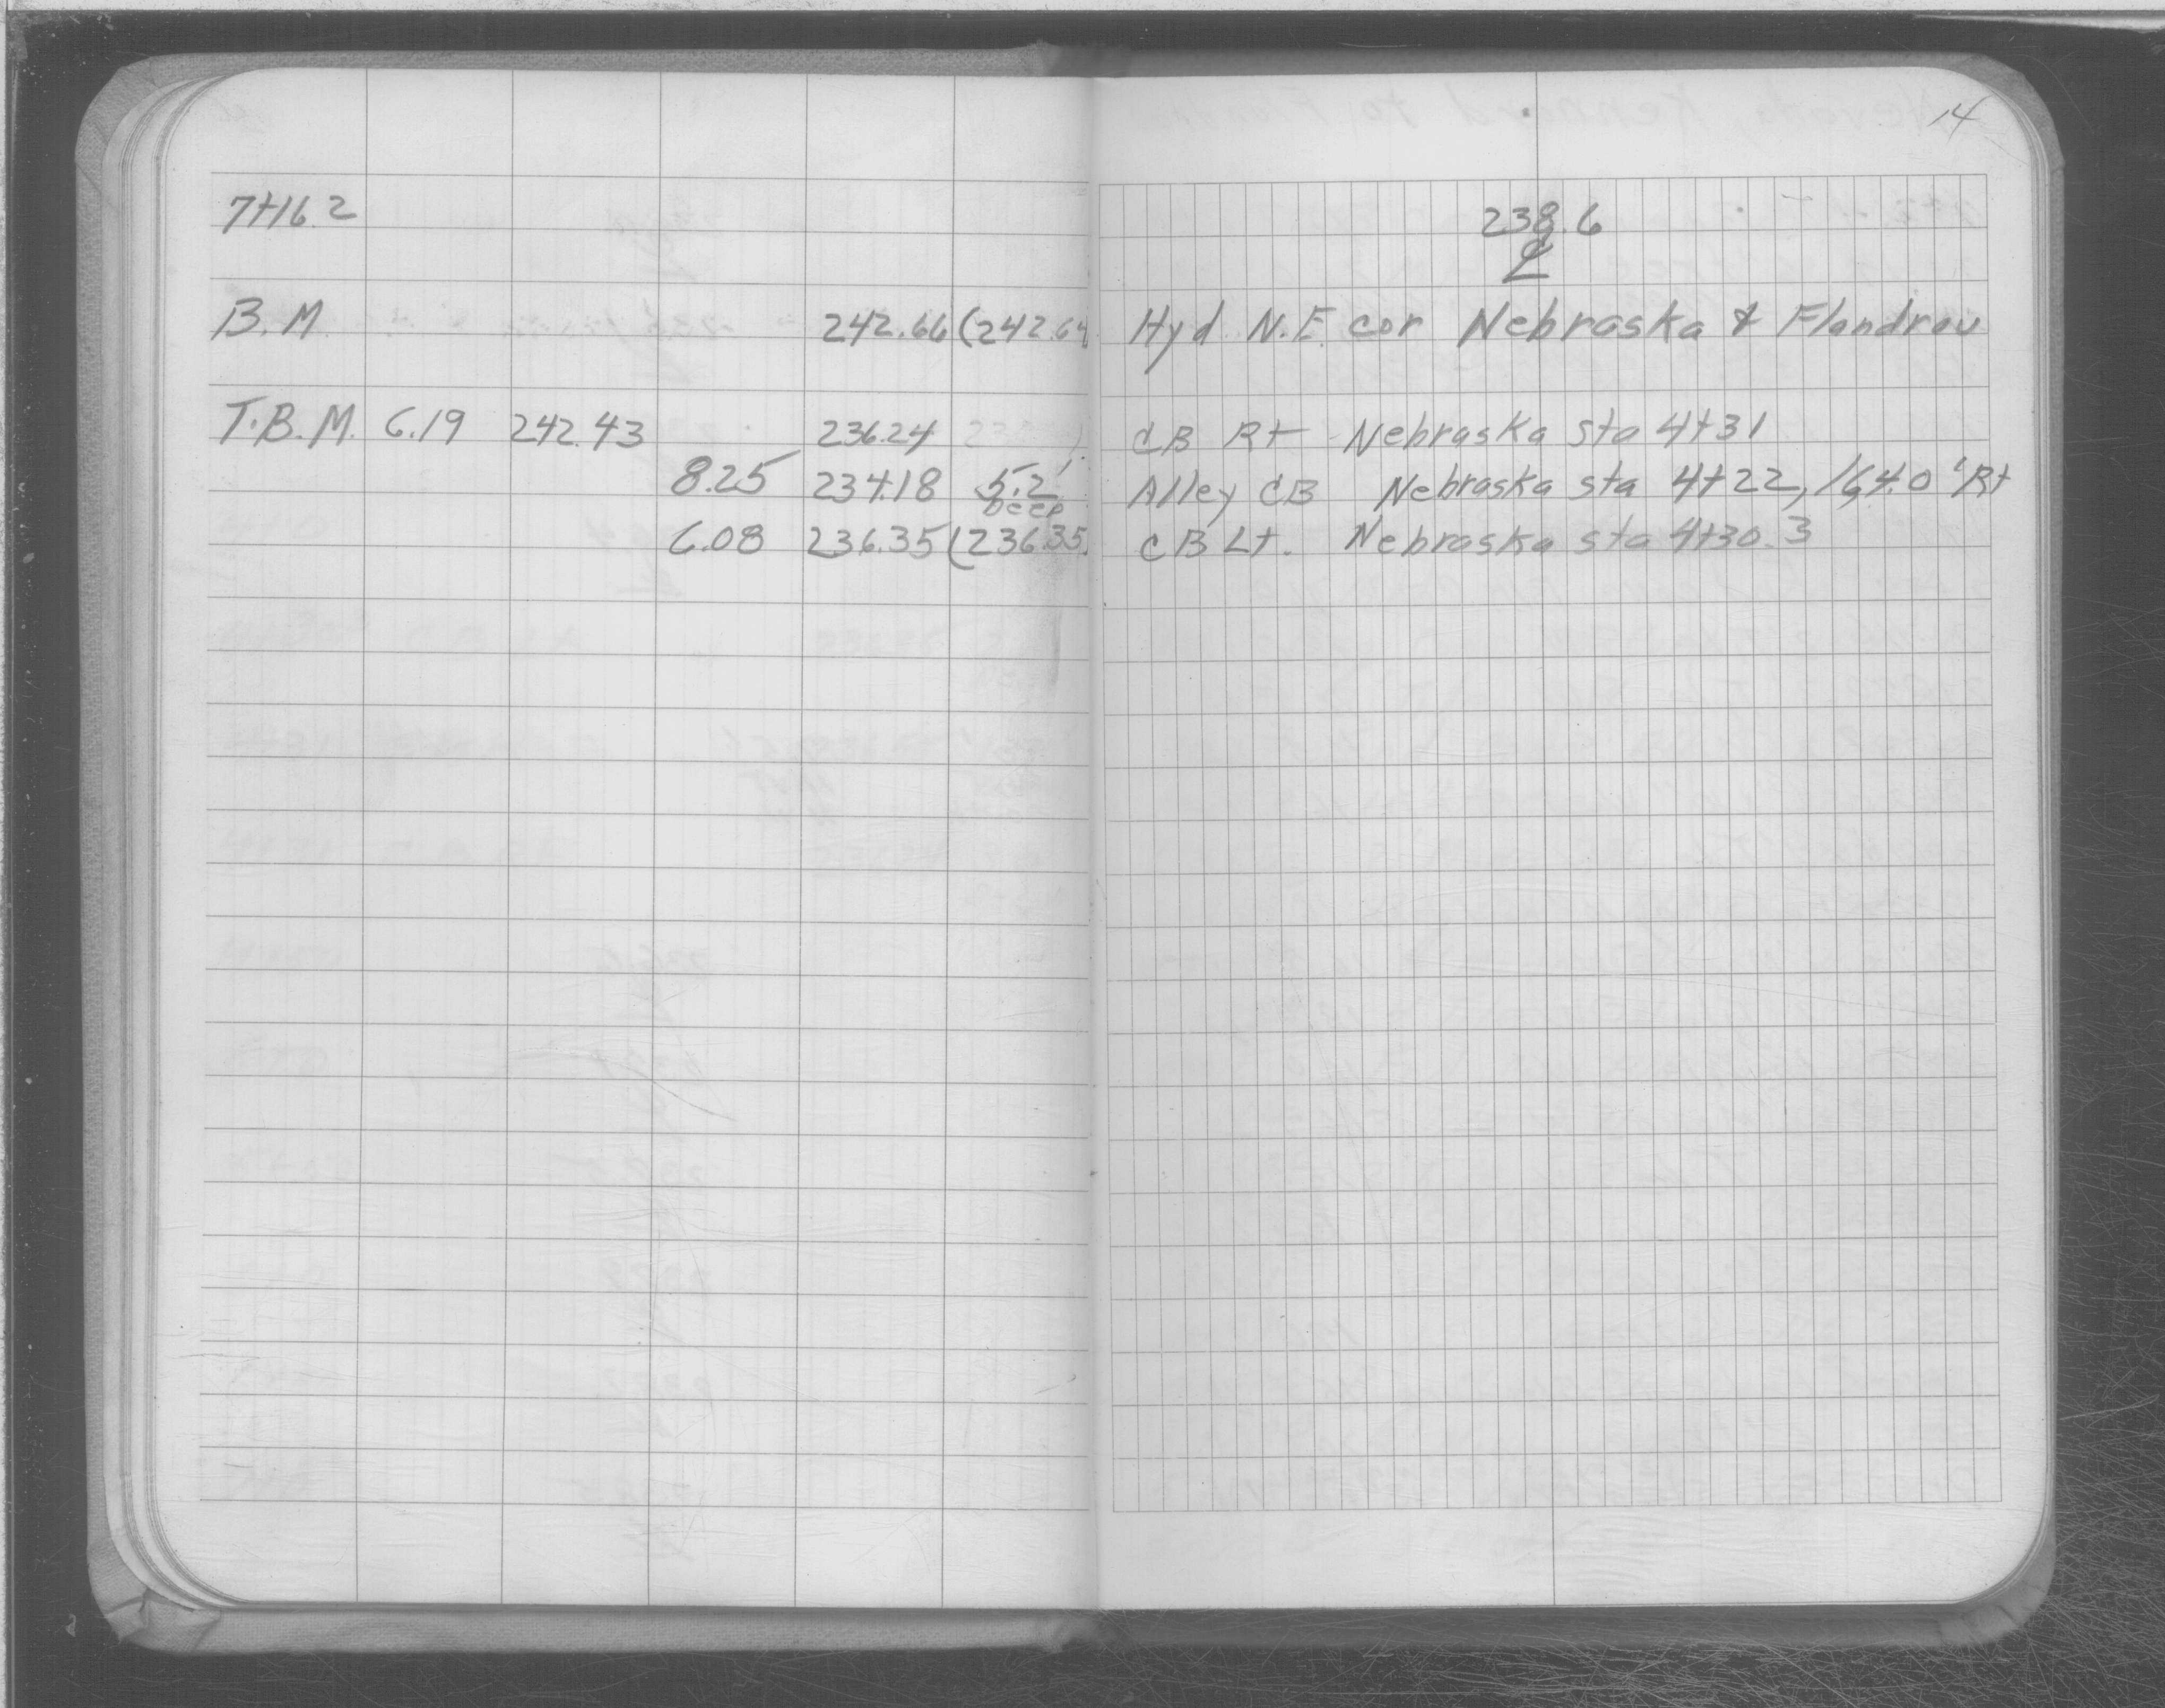 14
7+16.2 238.6
℄
B.M. 242.66 (242.64 Hyd. N.E. cor Nebraska & Flandrau
T.B.M. 6.19 242.43 236.24 CB Rt Nebraska sta 4+31
8.25 234.18 5.2' Deep Alley CB Nebraska sta 4+22, 164.0' Rt
6.08 236.35 (236.35) CB Lt. Nebraska sta 4+30.3